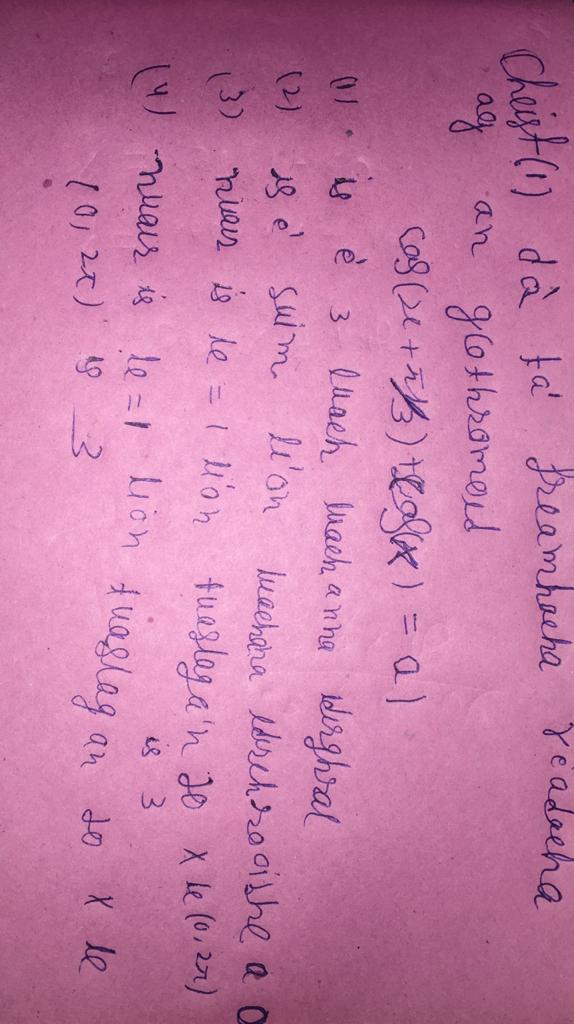 Cheist(1) dá tá freamhacha réadacha
ag an gcothromoid
cos(x + π/3) + cos(x) = a)
(1) is é 3 luach luachanna idirghral
(2) is é suim líon luachana a 0
(3) nuair is le = 1 líon tuaslagáin do x le (0, 2π)
is 3
(4) nuair is le = 1 líon tuaslagan do x le
(0, 2π) is 3